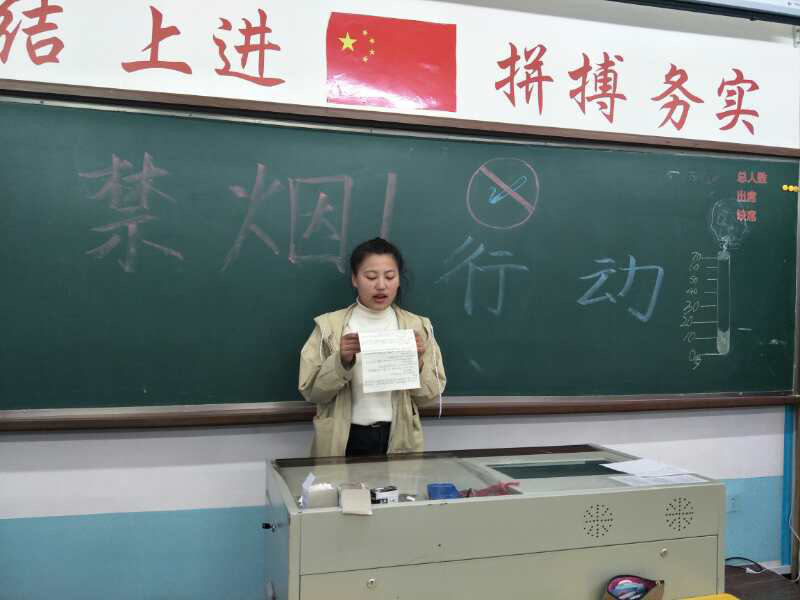 结 上进 拼搏 务实
禁烟!
行动
总人数
出席
缺席
70
60
50
40
30
20
10
0